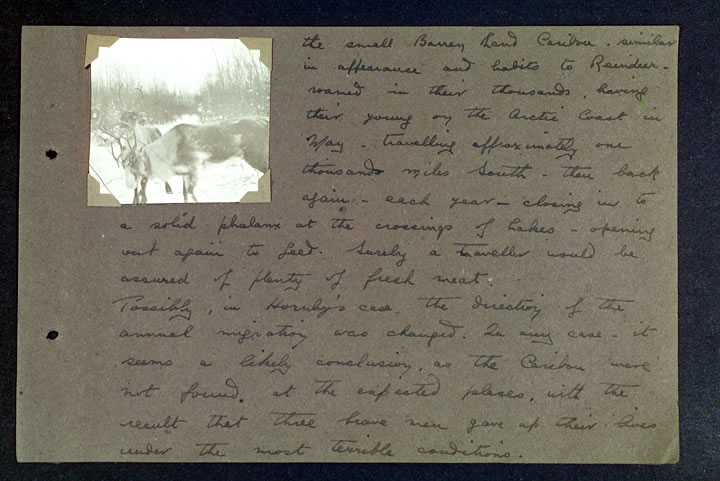 the small Barren Land Caribou - similar
in appearance and habits to Reindeer -
roamed in their thousands, having
their young on the Arctic Coast in
May - travelling approximately one
thousands miles South - then back
again - each year - closing in to
a solid phalanx at the crossings of Lakes - opening
out again to feed. Surely a traveller would be
assured of plenty of fresh meat.
Possibly, in Hornby's case, the direction of the
annual migration was changed. In any case - it
seems a likely conclusion, as the Caribou were
not found, at the expected places, with the
result that three brave men gave up their lives
under the most terrible conditions.